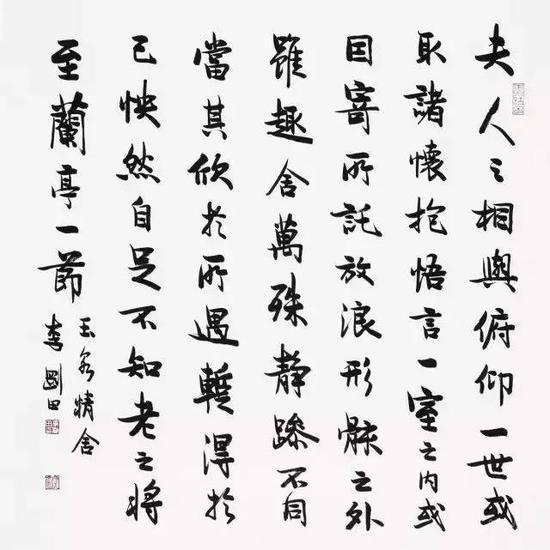 夫人之相與俯仰一世或
取諸懷抱悟言一室之内或
因寄所託放浪形骸之外
雖趣舍萬殊静躁不同
當其欣於所遇暫得於
己怏然自足不知老之將
至蘭亭一節
玉泉精舍
李剛田